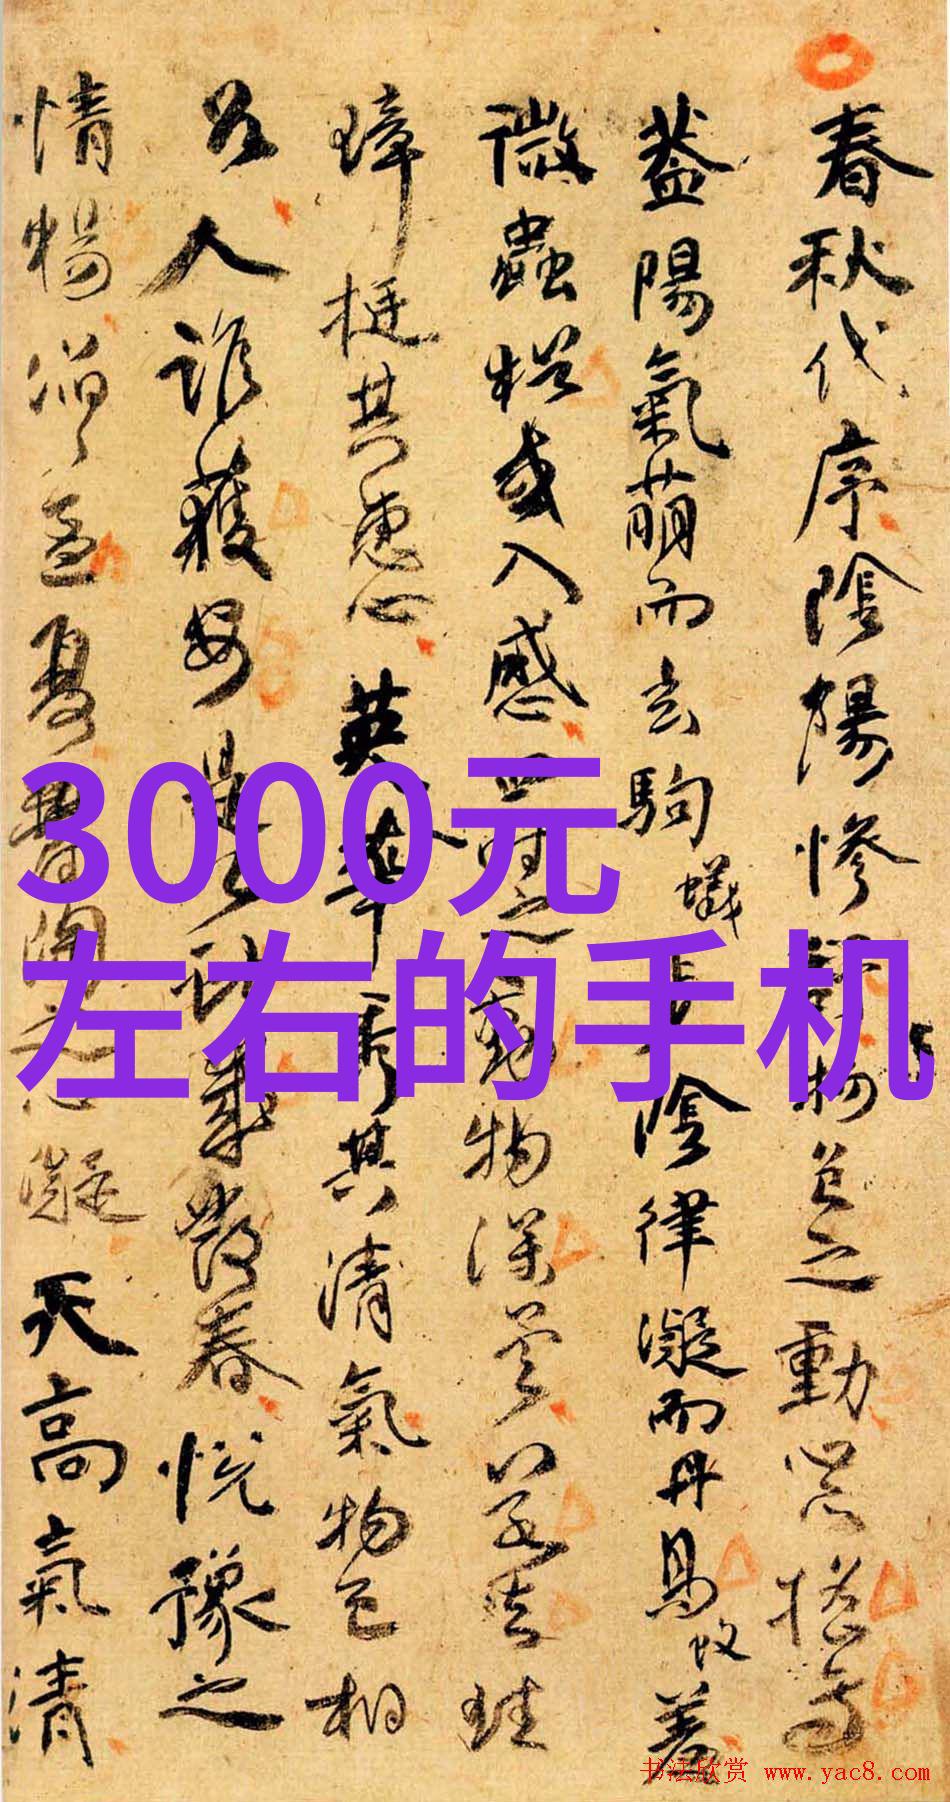 春秋代序陰陽慘舒物色之動心亦搖焉
蓋陽氣萌而玄駒蟻步陰律凝而丹鳥蚊羞
微蟲猶或入感四時之動物深矣若夫珪
璋挺其惠心英華秀其清氣物色相
召人誰獲安是以獻歲發春悅豫之
情暢滔滔孟夏鬱陶之心凝天高氣清
3000元
左右的手机
书法欣赏 www.yac8.com